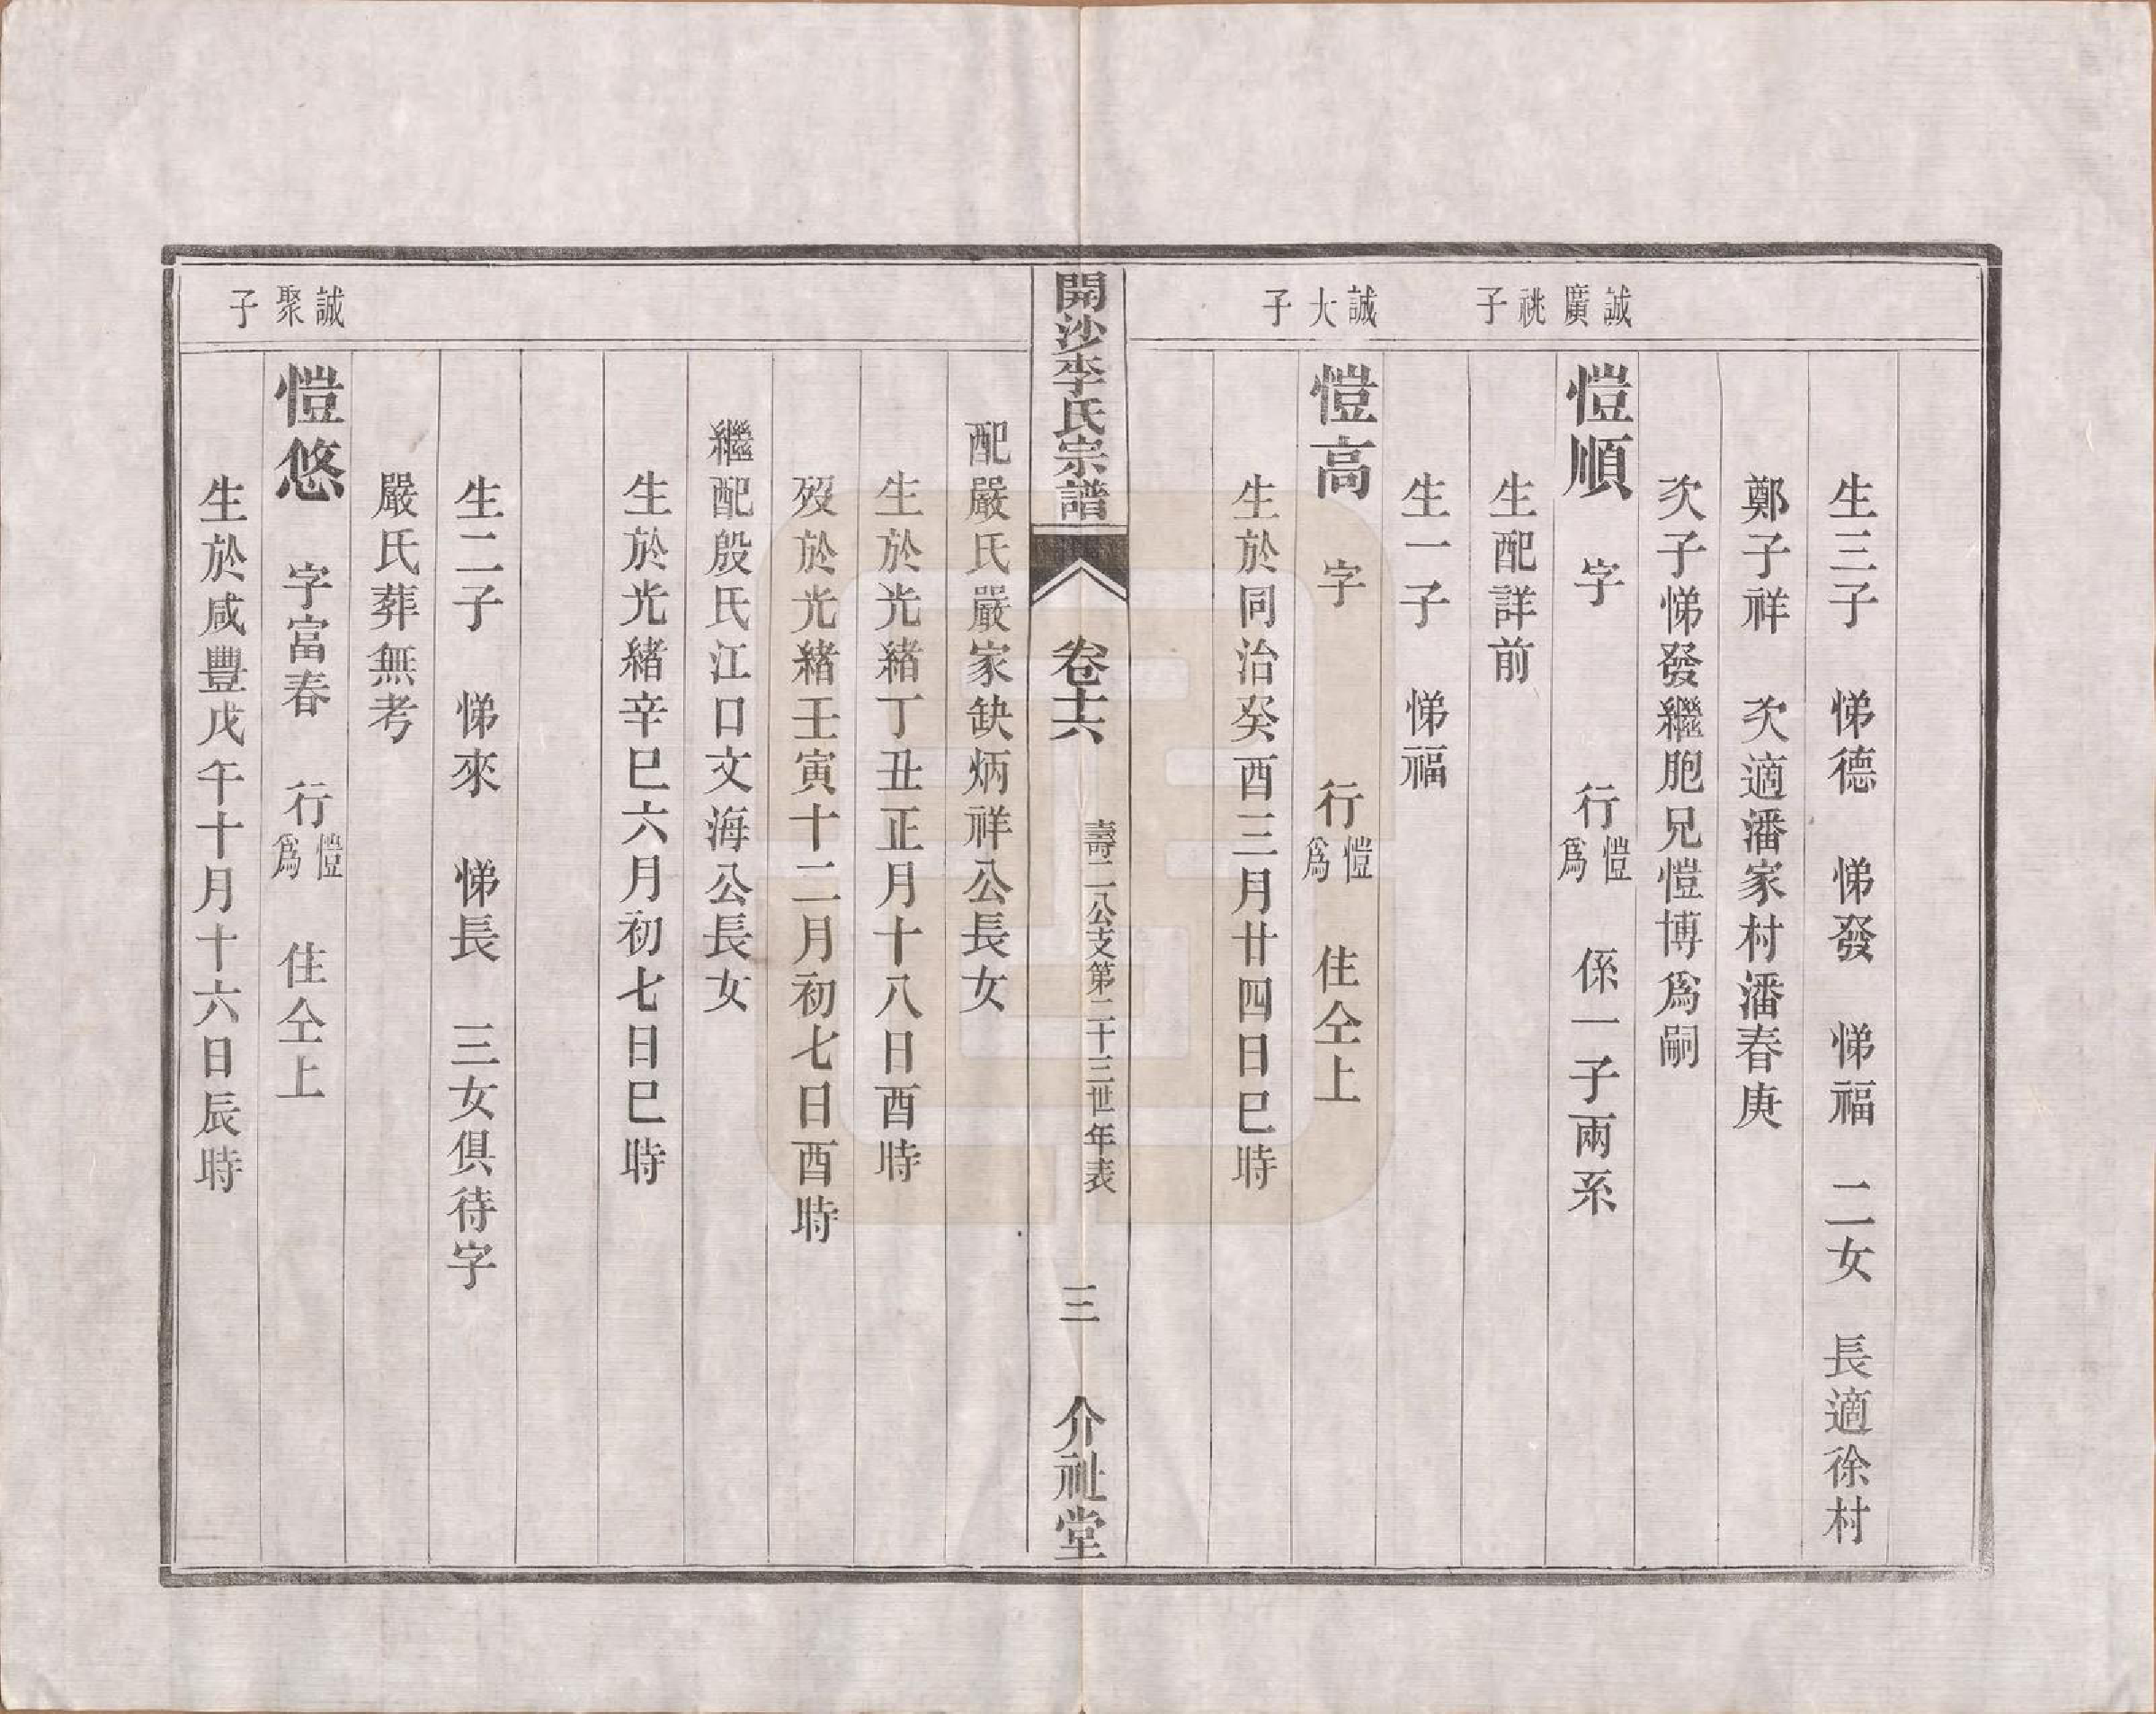 生三子 悌德 悌發 悌福 二女 長適徐村
鄭子祥 次適潘家村潘春庚
次子悌發繼胞兄愷博爲嗣
誠廣祧子
愷順 字 行愷爲 係一子兩系
生配詳前
生一子 悌福
誠大子
愷高 字 行愷爲 住仝上
生於同治癸酉三月廿四日巳時
開沙李氏宗譜 卷十六 壽二公支第二十三世年表 三 介祉堂
配嚴氏嚴家缺炳祥公長女
生於光緒丁丑正月十八日酉時
歿於光緒壬寅十二月初七日酉時
繼配殷氏江口文海公長女
生於光緒辛巳六月初七日巳時
生二子 悌來 悌長 三女俱待字
嚴氏葬無考
誠聚子
愷悠 字富春 行愷爲 住仝上
生於咸豐戊午十月十六日辰時